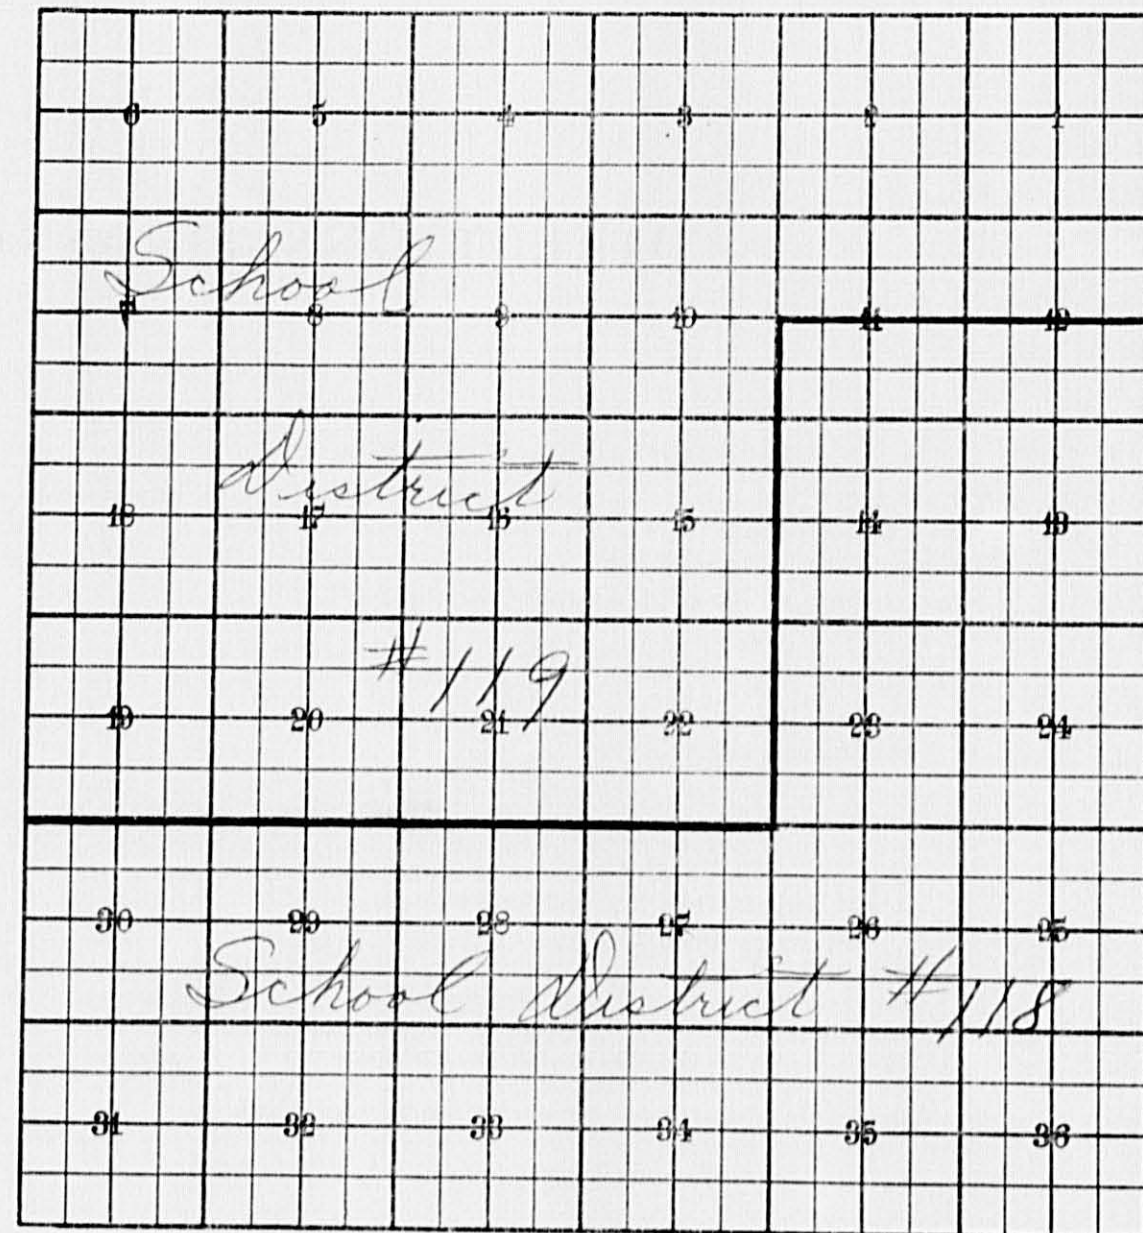 6 5 4 3 2 1
School
7 8 9 10 11 12
District
18 17 16 15 14 13
#119
19 20 21 22 23 24
30 29 28 27 26 25
School District #118
31 32 33 34 35 36